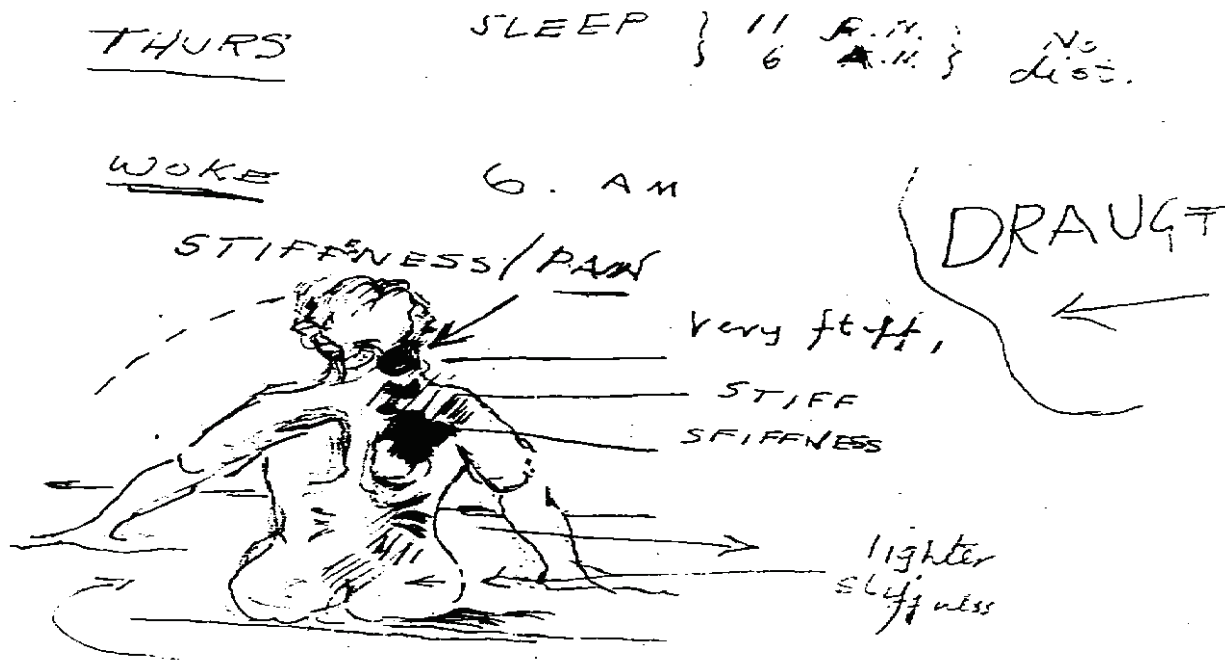 THURS SLEEP } 11 P.M. } No
} 6 A.M. } dist.
WOKE 6. AM
DRAUGT
STIFFNESS/PAIN
very stiff,
STIFF
SFIFFNESS
lighter
stiffness